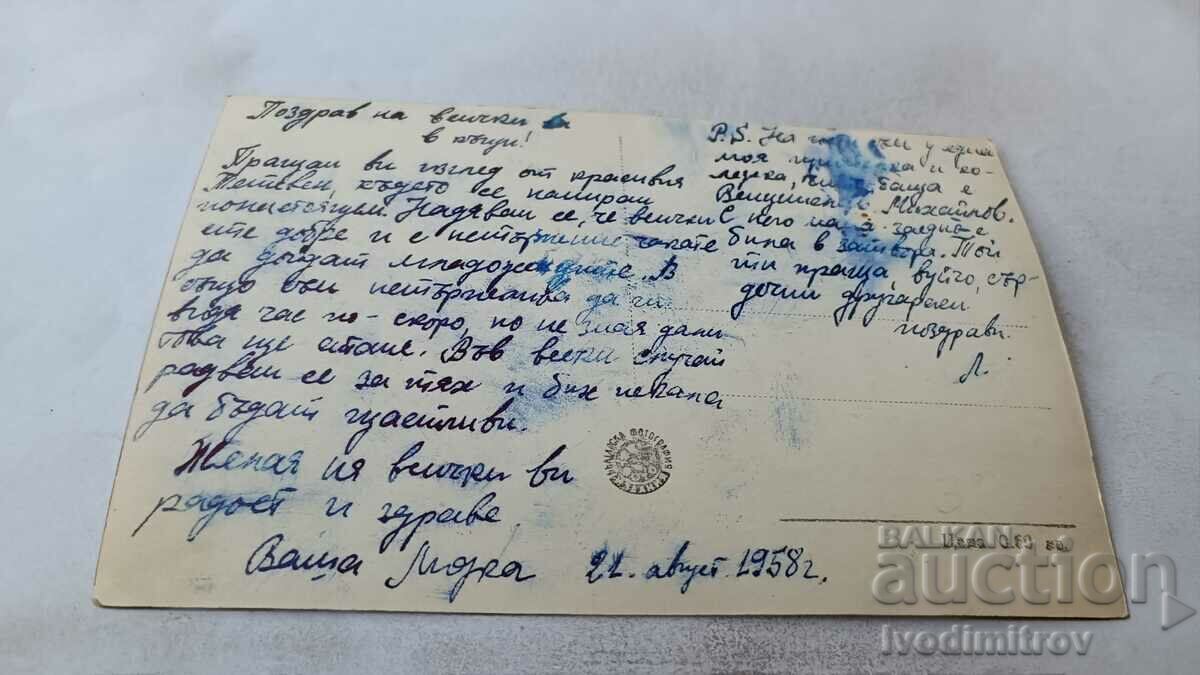 Поздрав на всички
в къщи!
Пращам ви изглед от красивия
Тетевен, където се намирам
понастоящем. Надявам се, че всички
сте добре и с нетърпение чакате
да дойдат младоженците. В
също съм нетърпелива да ги
видя час по-скоро, но не зная дали
това ще стане. Във всеки случай
радвам се за тях и бих искала
да бъдат щастливи.
Желая на всички ви
радост и здраве
Ваша 21. август 1958 г.
P.S. На у една
моя и ко-
лежка, баща е
Михайлов.
С него заедно е
била в затвора. Той
ти праща, вуйчо, сър-
дечни другарски
поздрави.
Л.
БЪЛГАРСКА ФОТОГРАФИЯ
Цена 0.80 лв.
BALKAN
auction
Ivodimitrov